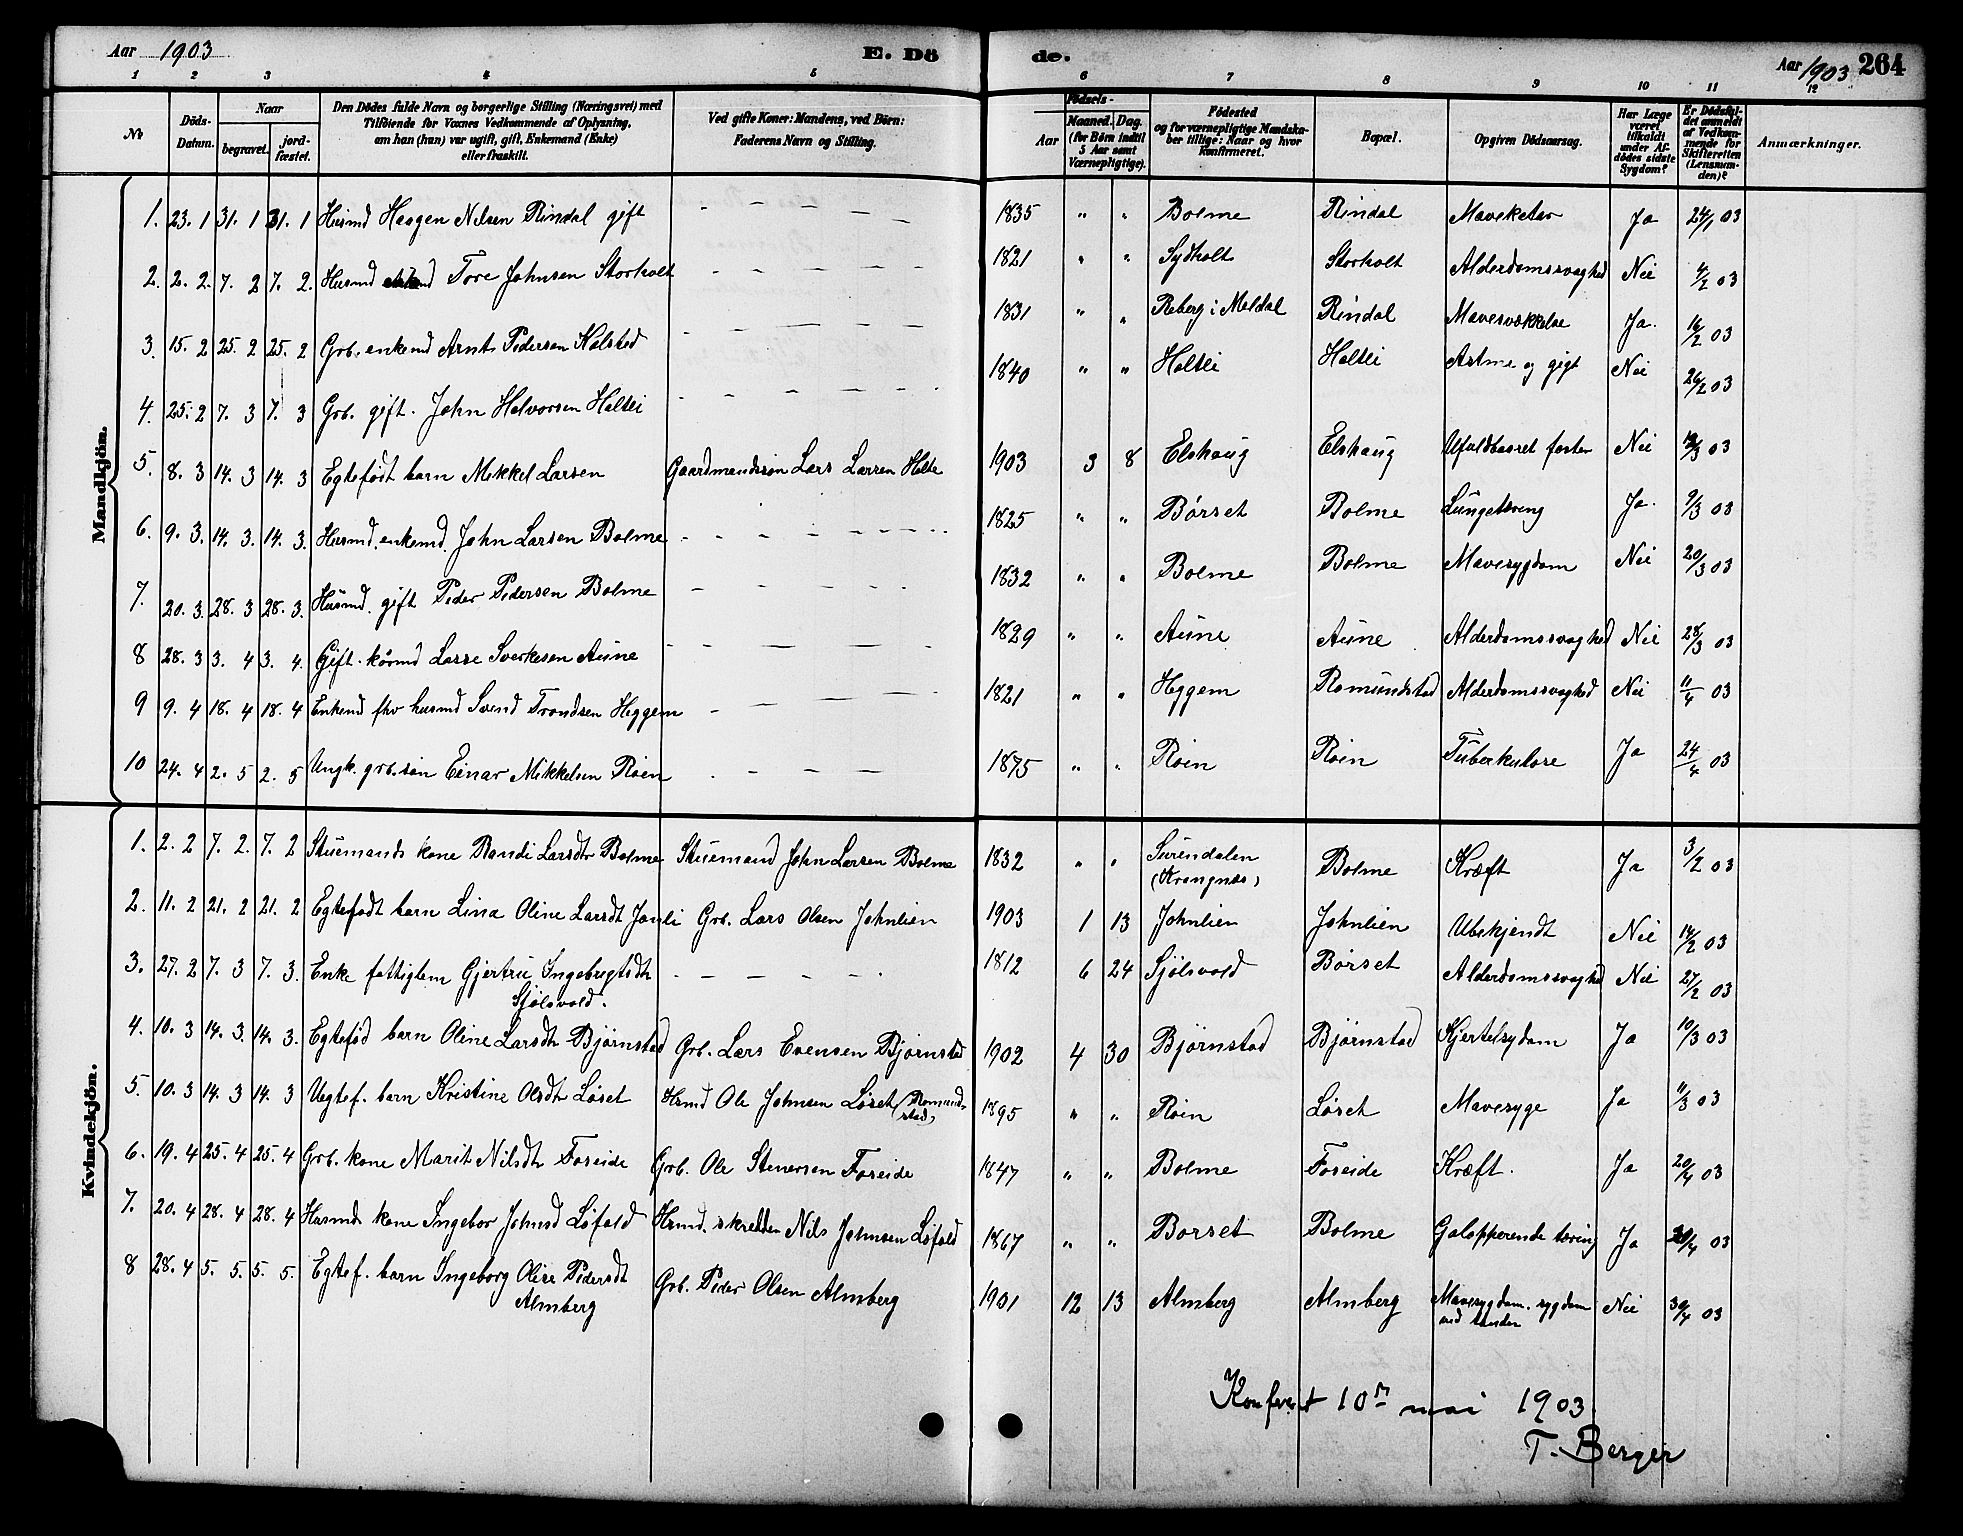 Aar 1903
E. Dö
de.
Aar 1903 264
1 2 3 4 5 6 7 8 9 10 11 12
No
Döds-Datum.
Naar
begravet.
jord-fæstet.
Den Dödes fulde Navn og borgerlige Stilling (Næringsvei) med
Tilföiende for Voxnes Vedkommende af Oplysning,
om han (hun) var ugift, gift, Enkemand (Enke)
eller fraskilt.
Ved gifte Koner: Mandens, ved Börn:
Faderens Navn og Stilling.
Födsels-
Aar
Maaned. Dag.
(for Börn indtil
5 Aar samt
Værnepligtige).
Födested
og for værnepligtige Mandska-
ber tillige: Naar og hvor
konfirmeret.
Bopæl.
Opgiven Dödsaarsag.
Har Læge
været
tilkaldt
under Af-
dödes sidste
Sygdom?
Er Dödsfal-
det anmeldt
af Vedkom-
mende for
Skifteretten
(Lensman-
den)?
Anmærkninger.
Mandkjön.
1. 23. 1 31. 1 31. 1 Husmd Haagen Nilsen Rindal gift - - - - - 1835 " " Bolme Rindal Mavekatar Ja 24/1 03
2. 2. 2. 7. 2 7. 2. Husmd Tore Johnsen Storholt - - - - - 1821 " " Sydholt Storholt Alderdomssvaghed Nei 4/2 03
3. 15. 2 25. 2 25. 2 Grb. enkemd Arnt Pedersen Halsted - - - - - 1831 " " Reberg i Meldal Rindal Mavesvækkelse Ja. 16/2 03
4. 25. 2 7. 3 7. 3 Grb. gift. John Halvorsen Holtli - - - - - 1840 " " Holtli Holtli Astme og gigt Nei 26/2 03
5. 8. 3 14. 3 14. 3 Egtefødt barn Mikkel Larsen Gaardmandssøn Lars Larsen Holte 1903 3 8 Elshaug Elshaug Ufuldbaaret foster Nei 12/3 03
6. 9. 3. 14. 3. 14. 3. Husmd. enkemd. John Larsen Bolme - - - - - 1825 " " Børset Bolme Lungetæring Ja. 9/3 03
7. 20. 3. 28. 3 28. 3. Husmd. gift Peder Pedersen Bolme - - - - 1832 " " Bolme Bolme Mavesygdom Nei 20/3 03
8 28. 3 3. 4 3. 4. Gift. kårmd Lasse Sverkesen Aune - - - - - 1829 " " Aune Aune Alderdomssvaghed Nei 28/3 03
9 9. 4 18. 4 18. 4 Enkemd fhv husmd Svend Trondsen Heggem - - - - 1821 " " Heggem Romundstad Alderdomssvaghed Nei 11/4 03
10 24. 4 2. 5 2. 5 Ungk. grb.søn Einar Mikkelsen Røen - - - - 1875 " " Røen Røen Tuberkulose Ja 24/4 03
Kvindekjön.
1. 2. 2 7. 2. 7. 2 Stuemands kone Randi Larsdtr Bolme Stuemand John Larsen Bolme 1832 " " Surendalen
(Krangnæs) Bolme Kræft Ja 3/2 03
2. 11. 2 21. 2 21. 2 Egtefødt barn Lina Oline Larsdt Jonli Grb. Lars Olsen Johnlien 1903 1 13 Johnlien Johnlien Ubekjendt Nei 14/2 03
3. 27. 2 7. 3 7. 3. Enke fattiglem Gjertru Ingebregtsdtr
Sjølsvold. - - - - - 1812 6 24 Sjølsvold Børset Alderdomssvaghed Nei 27/2 03
4. 10. 3 14. 3. 14. 3. Egtefød barn Oline Larsdtr Bjørnstad Grb. Lars Evensen Bjørnstad 1902 4 30 Bjørnstad Bjørnstad Kjertelsydom Ja 10/3 03
5. 10. 3 14. 3 14. 3 Uegtef. barn Kristine Olsdtr Løset Hsmd Ole Johnsen Løset (Romund-
stad) 1895 " " Røen Løset Mavesyge Ja 11/3 03
6. 19. 4 25. 4 25. 4 Grb. kone Marit Nilsdtr Foseide Grb. Ole Stenersen Foseide 1847 " " Bolme Foseide Kræft. Ja 20/4 03
7. 20. 4 28. 4 28. 4 Husmds kone Ingebor Johnsd Løfald Hsmd. skredder Nils Johnsen Løfald 1867 " " Børset Bolme Galopperende tæring Ja 20/4 03
8 28. 4 5. 5. 5. 5. Egtef. barn Ingeborg Oline Pedersdt
Almberg Grb. Peder Olsen Almberg 1901 12 13 Almberg Almberg Mavesygdom. sygdom
ved tænder Nei 30/4 03
Konferert 10de mai 1903
T. Berger